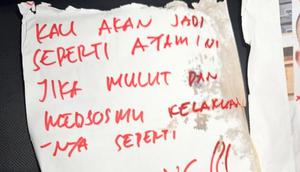 KAU AKAN JADI
SEPERTI AYAM INI
JIKA MULUT DAN
MEDSOSMU KELAKUAN
-NYA SEPERTI